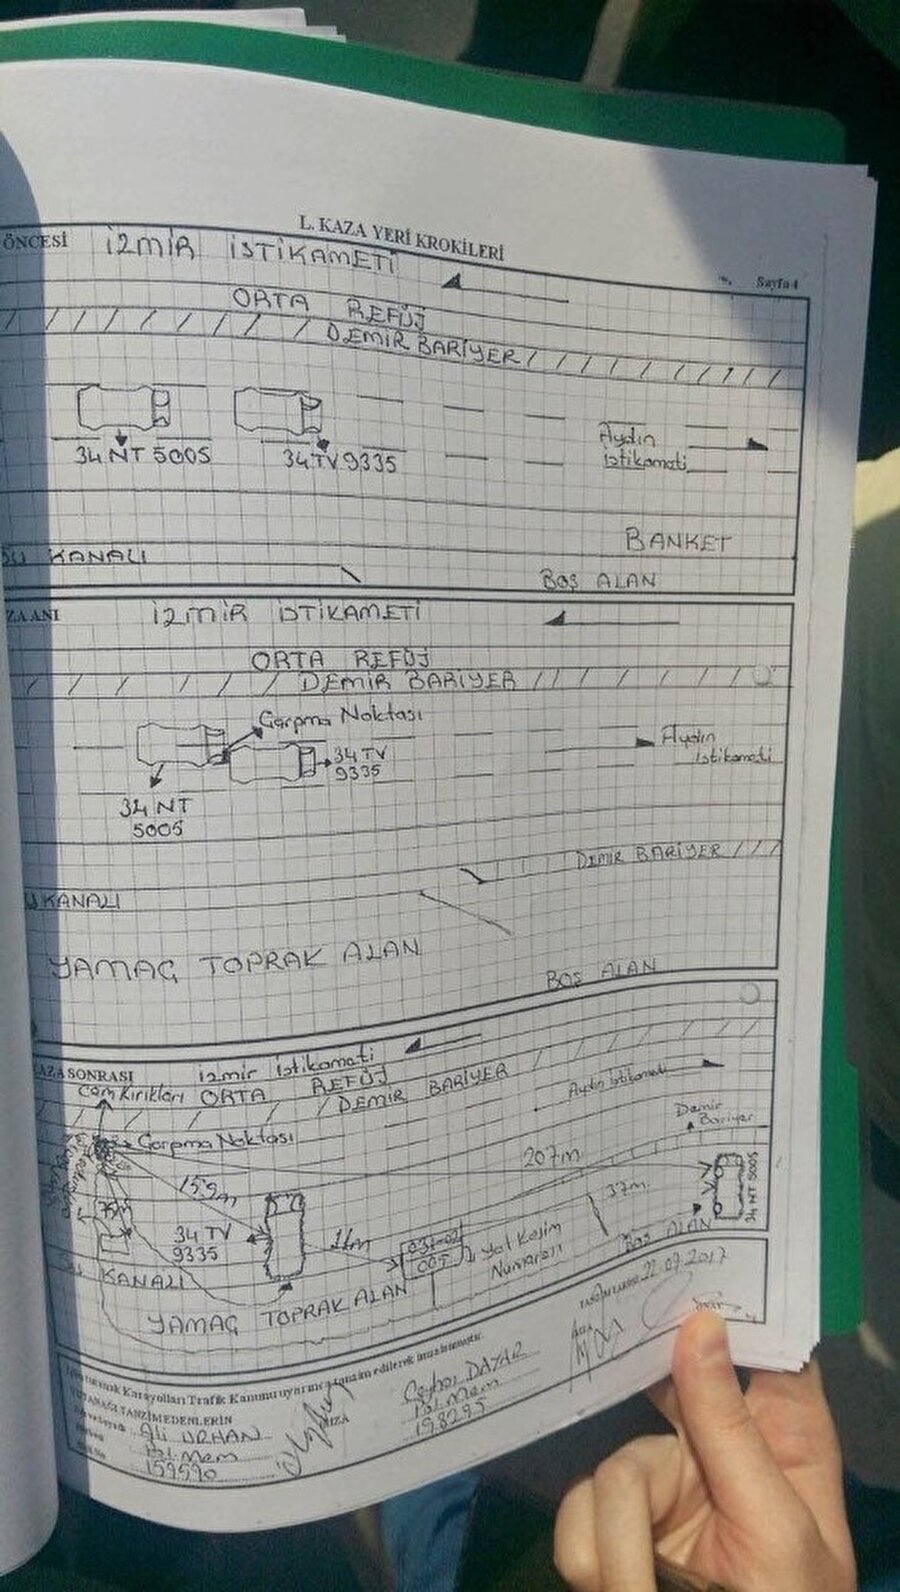 L. KAZA YERİ KROKİLERİ
Sayfa 4
ÖNCESİ İZMİR İSTİKAMETİ
ORTA REFÜJ
DEMİR BARİYER
34 NT 5005
34 TV 9335
Aydın
istikameti
BANKET
SU KANALI
BOŞ ALAN
ZA ANI İZMİR İSTİKAMETİ
ORTA REFÜJ
DEMİR BARİYER
Çarpma Noktası
34 TV
9335
Aydın
istikameti
34 NT
5005
DEMİR BARİYER
U KANALI
YAMAÇ TOPRAK ALAN
BOŞ ALAN
KAZA SONRASI izmir istikameti
Cam Kırıkları ORTA REFÜJ
DEMİR BARİYER
Aydın istikameti
Demir
Bariyer
Çarpma Noktası
207m
159m
75m
34 TV
9335
11m
031-02
005
Yol Kesim
Numarası
37m
34 NT 5005
BOŞ ALAN
SU KANALI
YAMAÇ TOPRAK ALAN
22.07.2017
Karayolları Trafik Kanunu uyarınca tanzim edilerek imzalanmıştır.
TUTANAĞI TANZİM EDENLERİN
Ali URHAN
Pol. Mem
159590
İMZA
Ceyhi DAYAR
Pol. Mem
198295